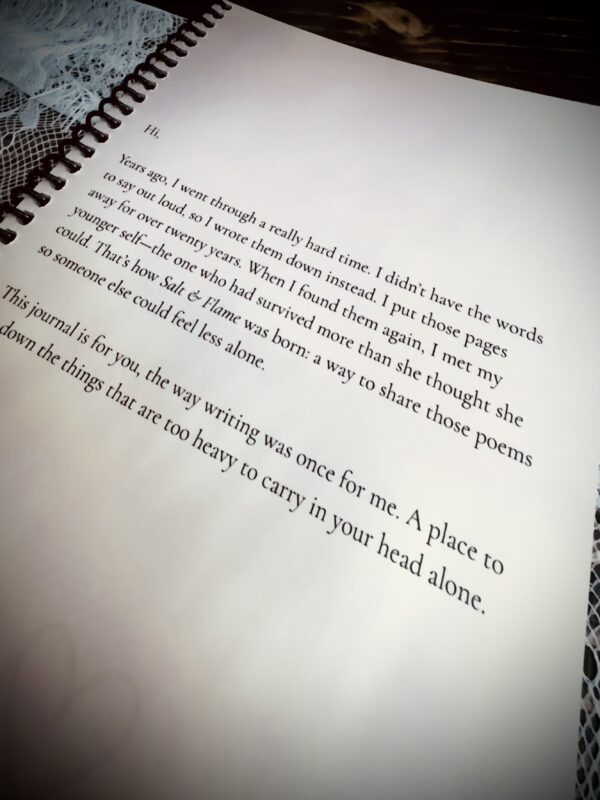 Hi,
Years ago, I went through a really hard time. I didn't have the words
to say out loud, so I wrote them down instead. I put those pages
away for over twenty years. When I found them again, I met my
younger self—the one who had survived more than she thought she
could. That's how Salt & Flame was born: a way to share those poems
so someone else could feel less alone.
This journal is for you, the way writing was once for me. A place to
down the things that are too heavy to carry in your head alone.